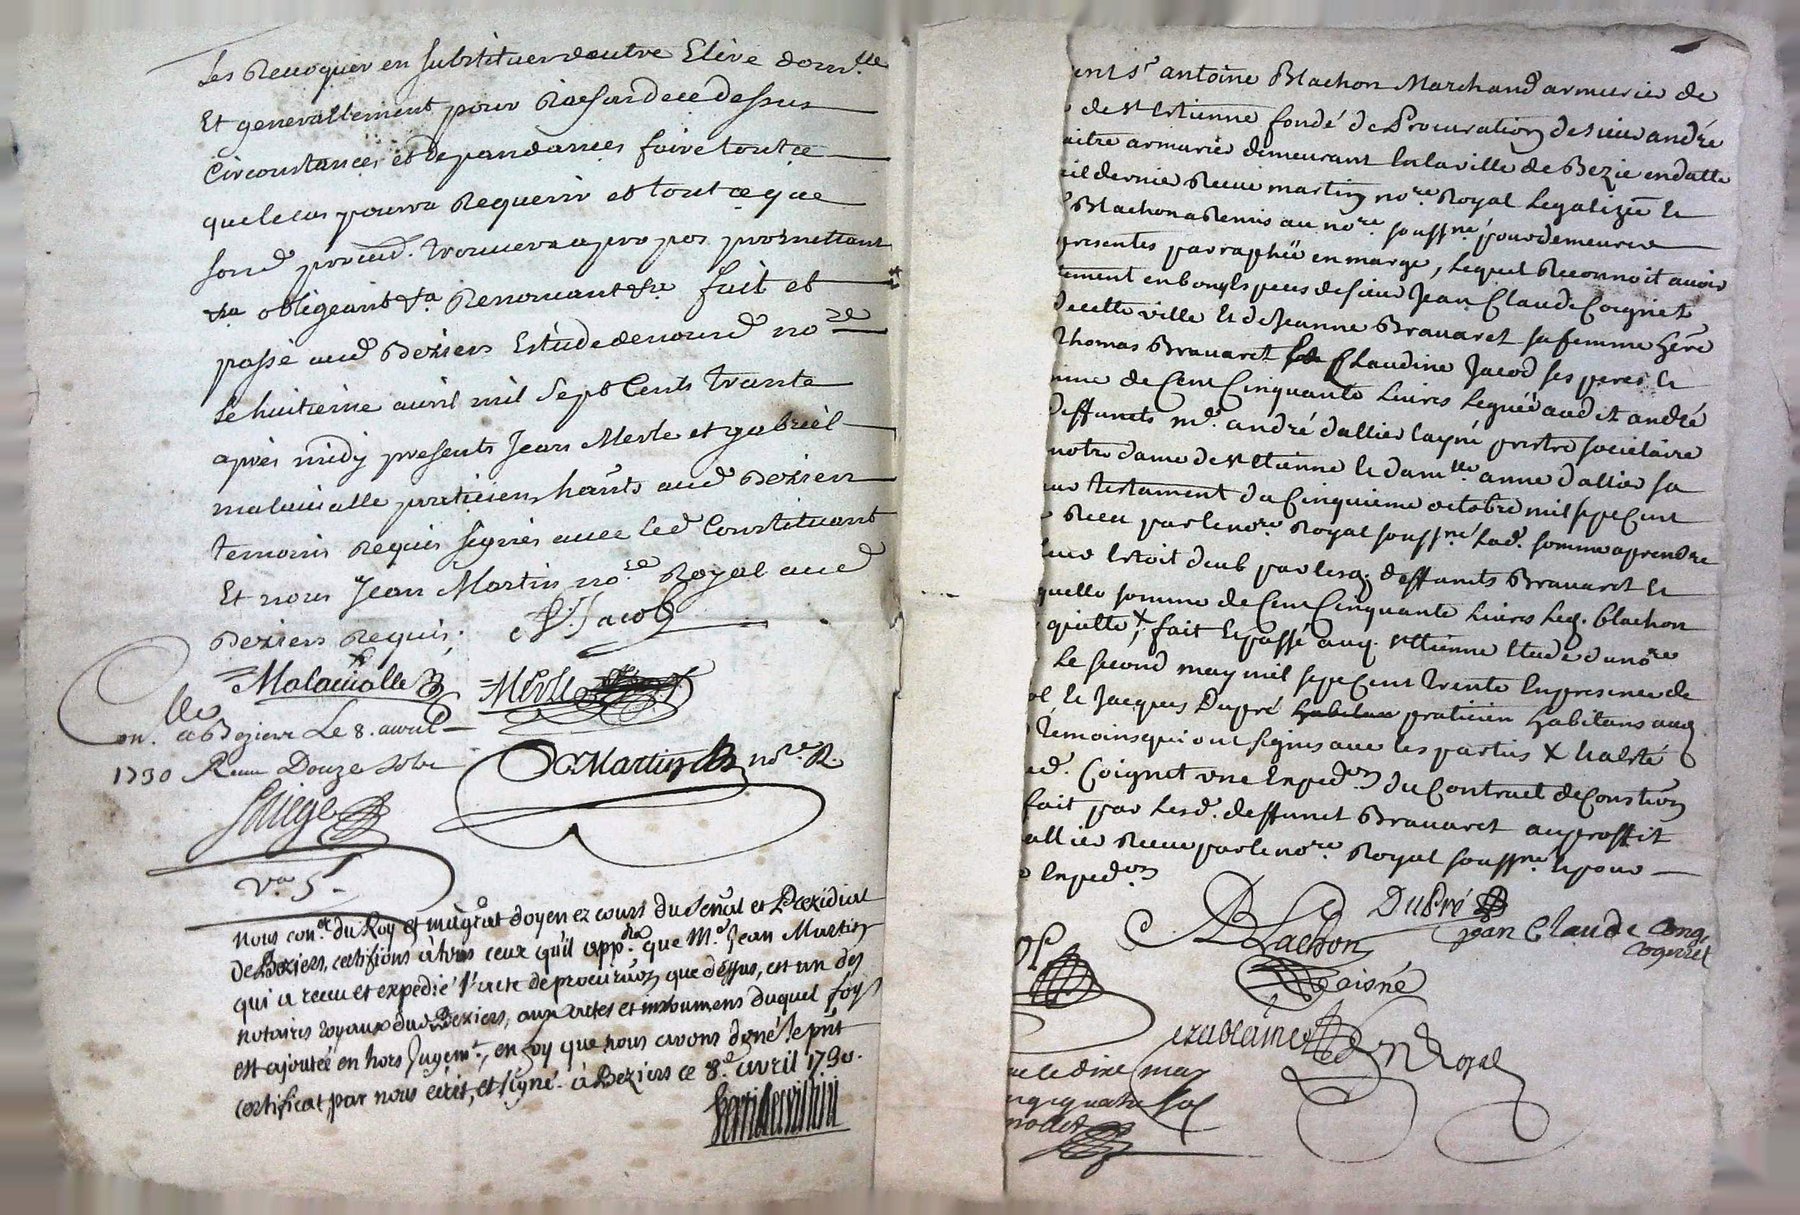 Les Revoquer en substituer doutre Elire domlle
Et generallement pour Raison de ce dessus
Circonstances et dependances faire tout ce
que le cas pourra Requerir et tout ce que
sond. procur. trouvera a propos promettant
&a obligeant &a Renoncant &a fait et
passé aud Beziers Estude de nousd nore
Le huitieme avril mil sept Cents trante
apres midy presents Jean Merle et gabriel
malaivalle praticiens hants aud Beziers
temoins Requis signés avec led Constituant
Et nous Jean Martin nore Royal aud
Beziers Requis;
Jacob
Malaivalle
Merle
Conlle a Beziers Le 8. avril
1730 Receu Douze sols
Martin nore R.
Nous coner du Roy et magrat doyen ez cours du Senal et Presidial
de Beziers, certifions à tous ceux qu'il appra que Me Jean Martin
qui a receu et expédié l'acte de procuration que dessus, est un des
notaires royaux dud Beziers, aux actes et instrumens duquel foy
est ajoutée en hors Jugemt, en foy que nous avons doné le pnt
certificat par nous ecrit, et signé. à Beziers ce 8e avril 1730.
ent sr antoine Blachon Marchand armurier de
de st Etienne fondé de Procuration de sieur andré
aitre armurier demeurant en la ville de Bezie en datte
ril dernier Receue martin nore Royal Legalizée Le
Blachon a Remis au nore soussné pour demeurer
presentes parraphée en marge, Lequel Reconnoit avoir
ement en bonnes especes de sieur Jean Claude Coignet
de cette ville Et de Jeanne Bravaret sa femme here
Thomas Bravaret Claudine Jacod ses peres Et
me de Cent Cinquante Livres Leguée aud st andré
deffunts mre andré dallier layné prestre sociétaire
notre dame de st Etienne Et damlle anne dallier sa
testament du Cinquieme octobre mil sept Cent
Receu par le nore Royal soussné Lad. somme a prendre
Estoit deub par lesq. deffunts Bravaret Et
quelle somme de Cent Cinquante Livres Led. Blachon
quitte X, fait Et passé auq. st Etienne Etude du nore
Le second may mil sept Cent trente En presence de
Et Jacques Dupré praticien habitans auq
temoins qui ont signés avec les parties X
ud. Coignet une Expedon du Contract de Constion
fait par Lesd. deffunct Bravaret au proffit
allier Receu par le nore Royal soussné Et pour
Expedon
Dupré
Blachon
jean Claude
cogniet
Royal